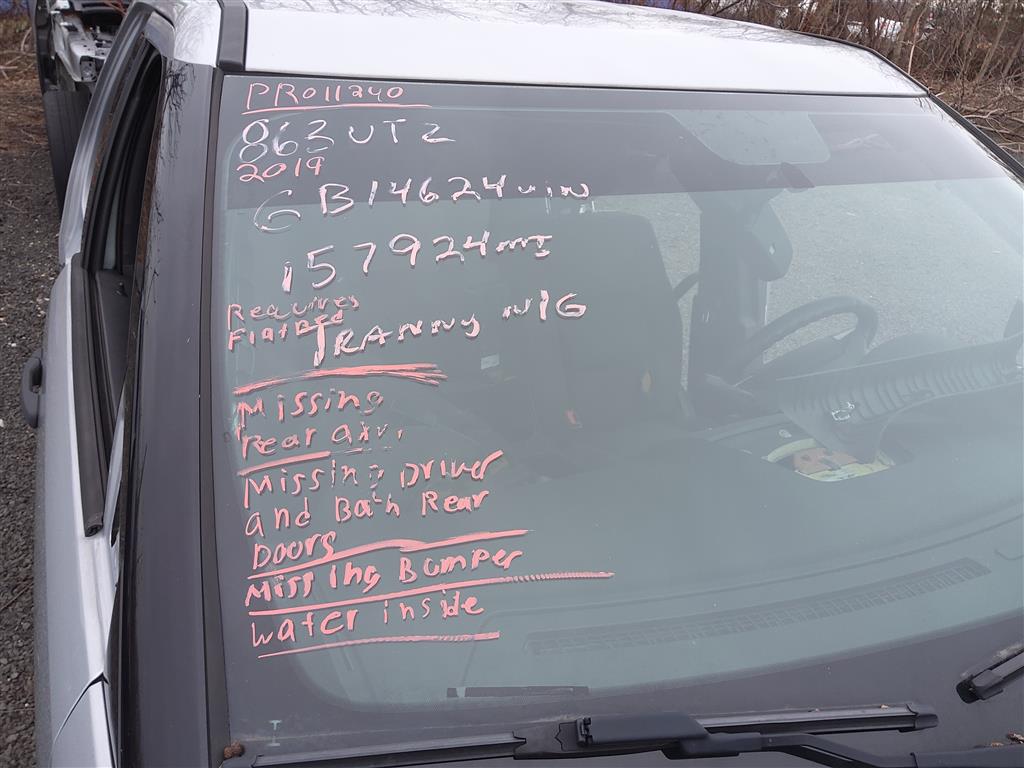 PRO11240
863 UTZ
2019
GB14624 VIN
157924 mi
Requires
Flatbed
TRANNY N/G
Missing
rear
Missing Driver
and Both Rear
Doors
Missing Bumper
Water inside